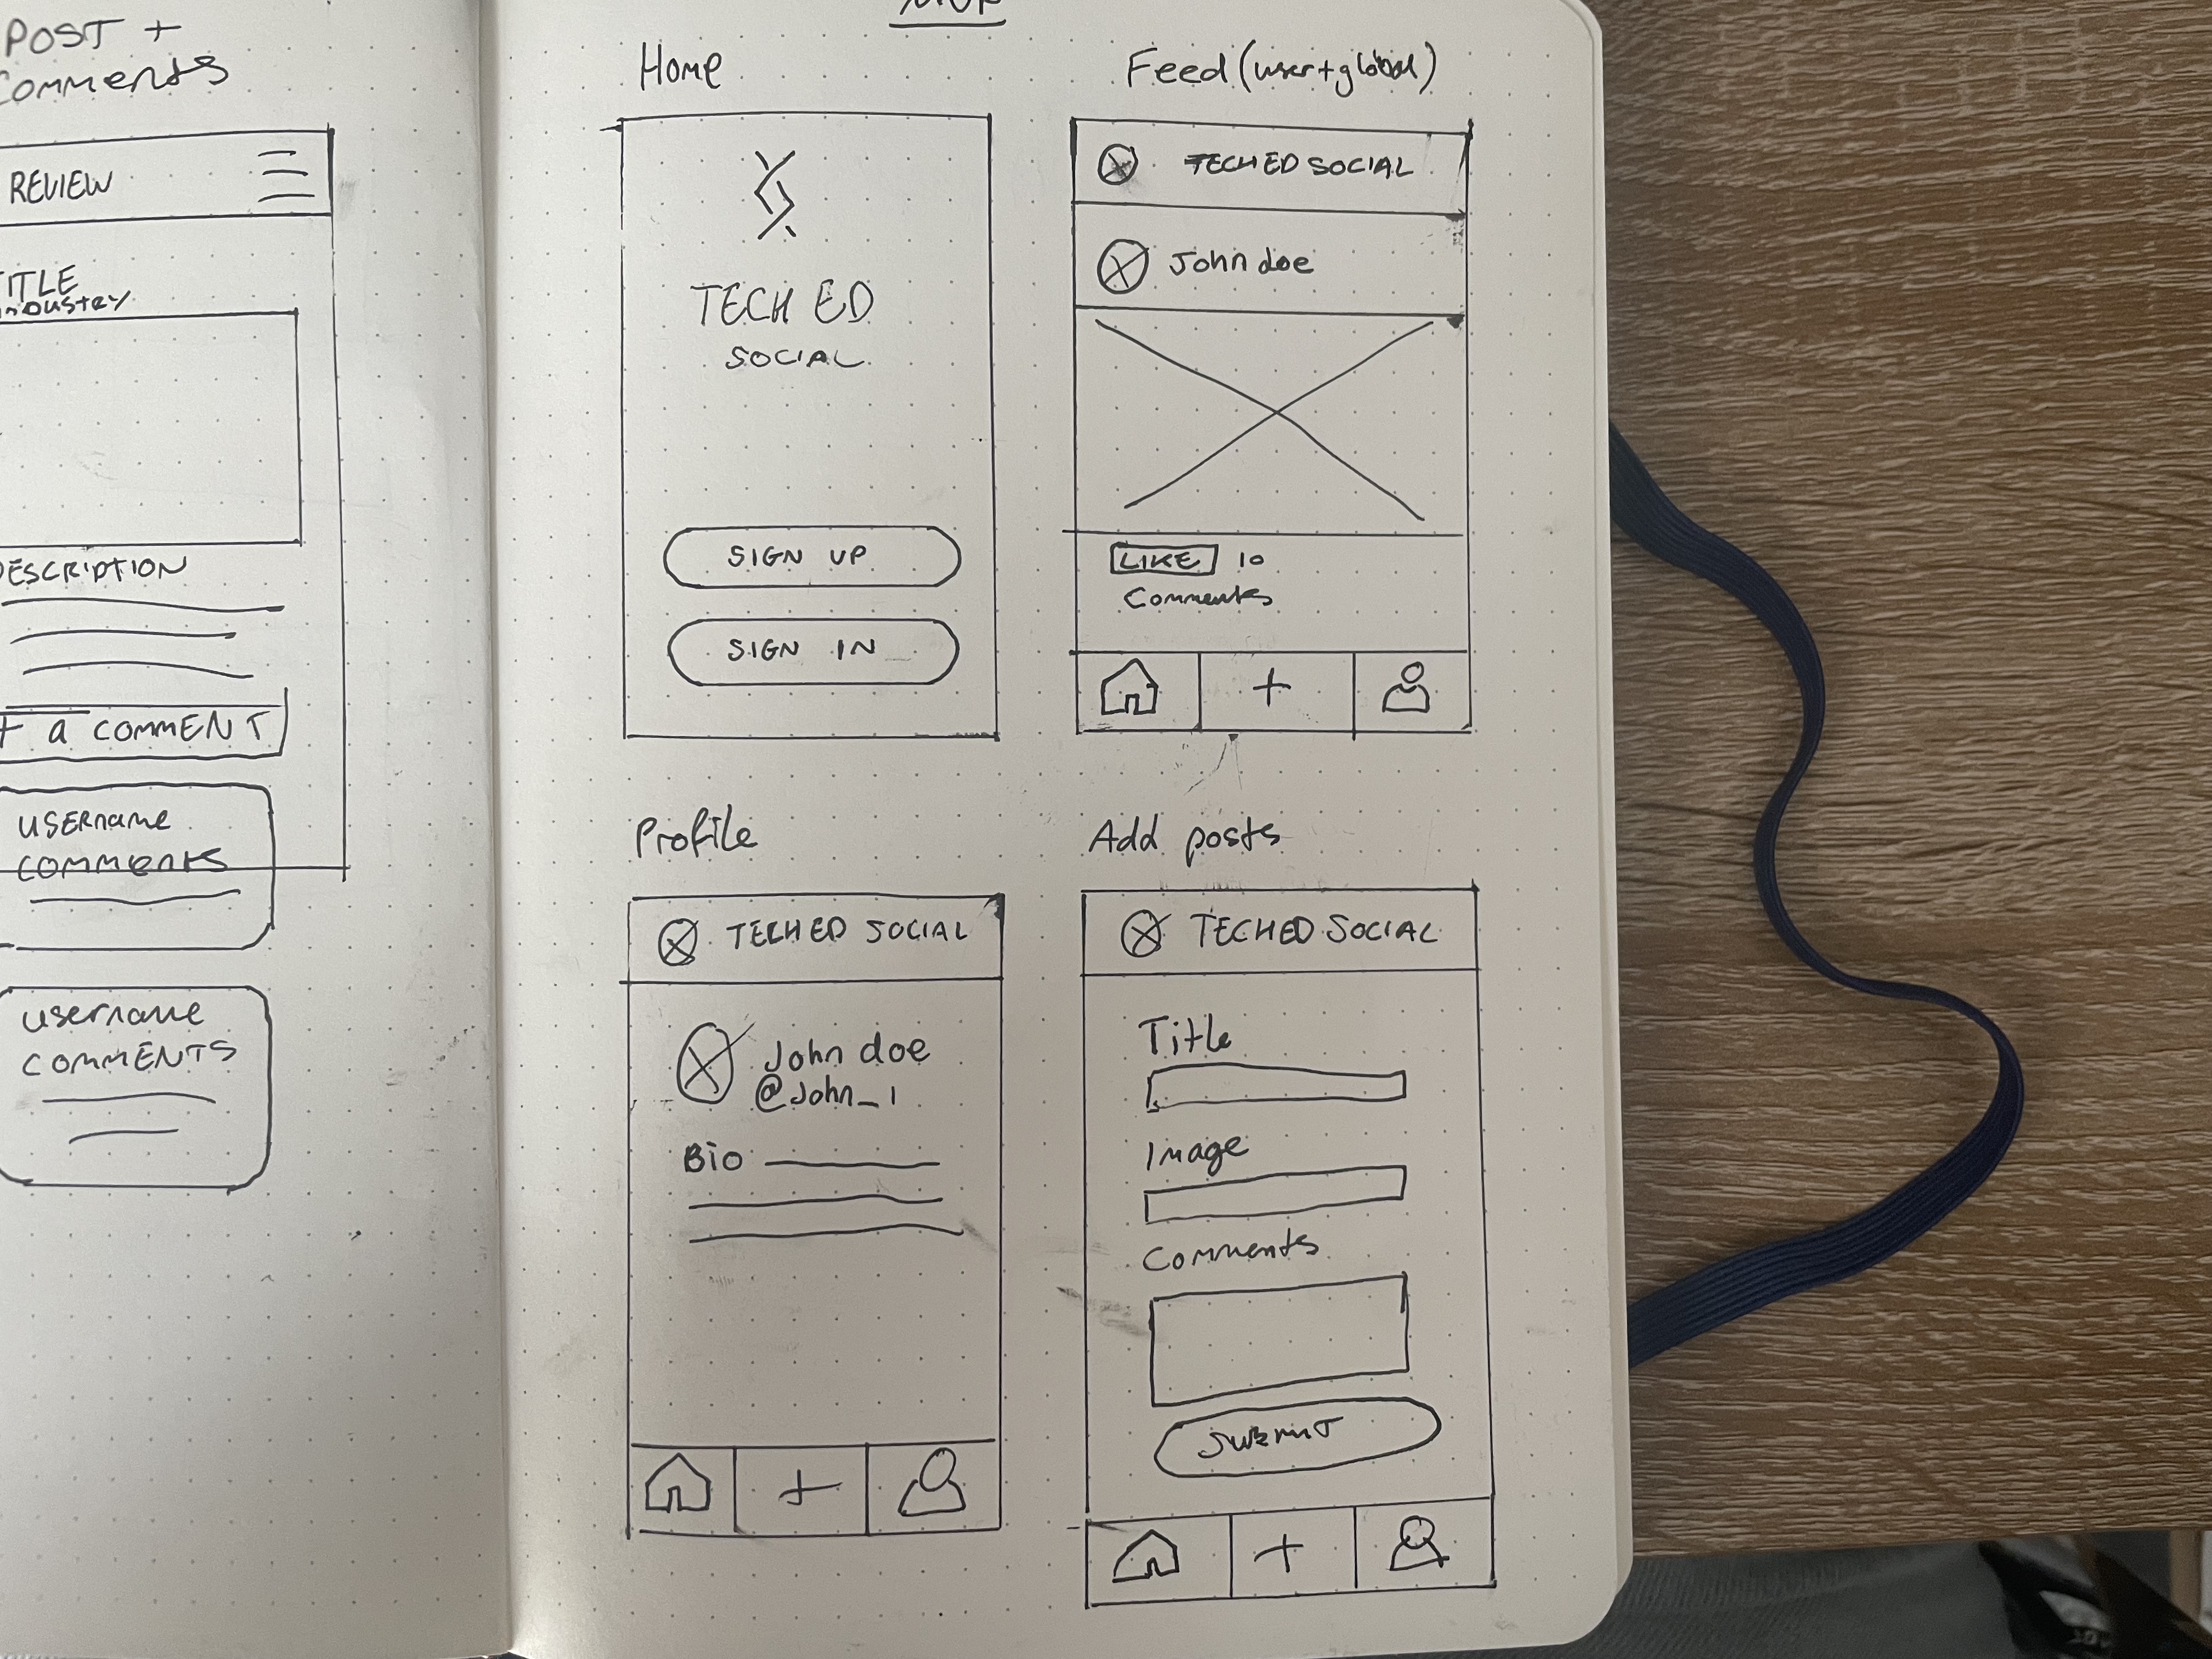 POST +
Comments
REVIEW
TITLE
DESCRIPTION
A COMMENT
USERname
comments
username
COMMENTS
Home
TECH ED
SOCIAL
SIGN UP
SIGN IN
Feed (user+global)
TECH ED SOCIAL
John doe
LIKE 10
Comments
Profile
TECH ED SOCIAL
John doe
@John_1
Bio
Add posts
TECH ED SOCIAL
Title
Image
Comments
SUBMIT